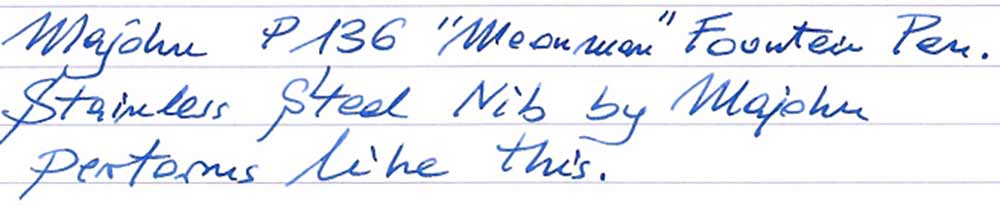 Majohn P136 "Moonman" Fountain Pen.
Stainless Steel Nib by Majohn
performs like this.